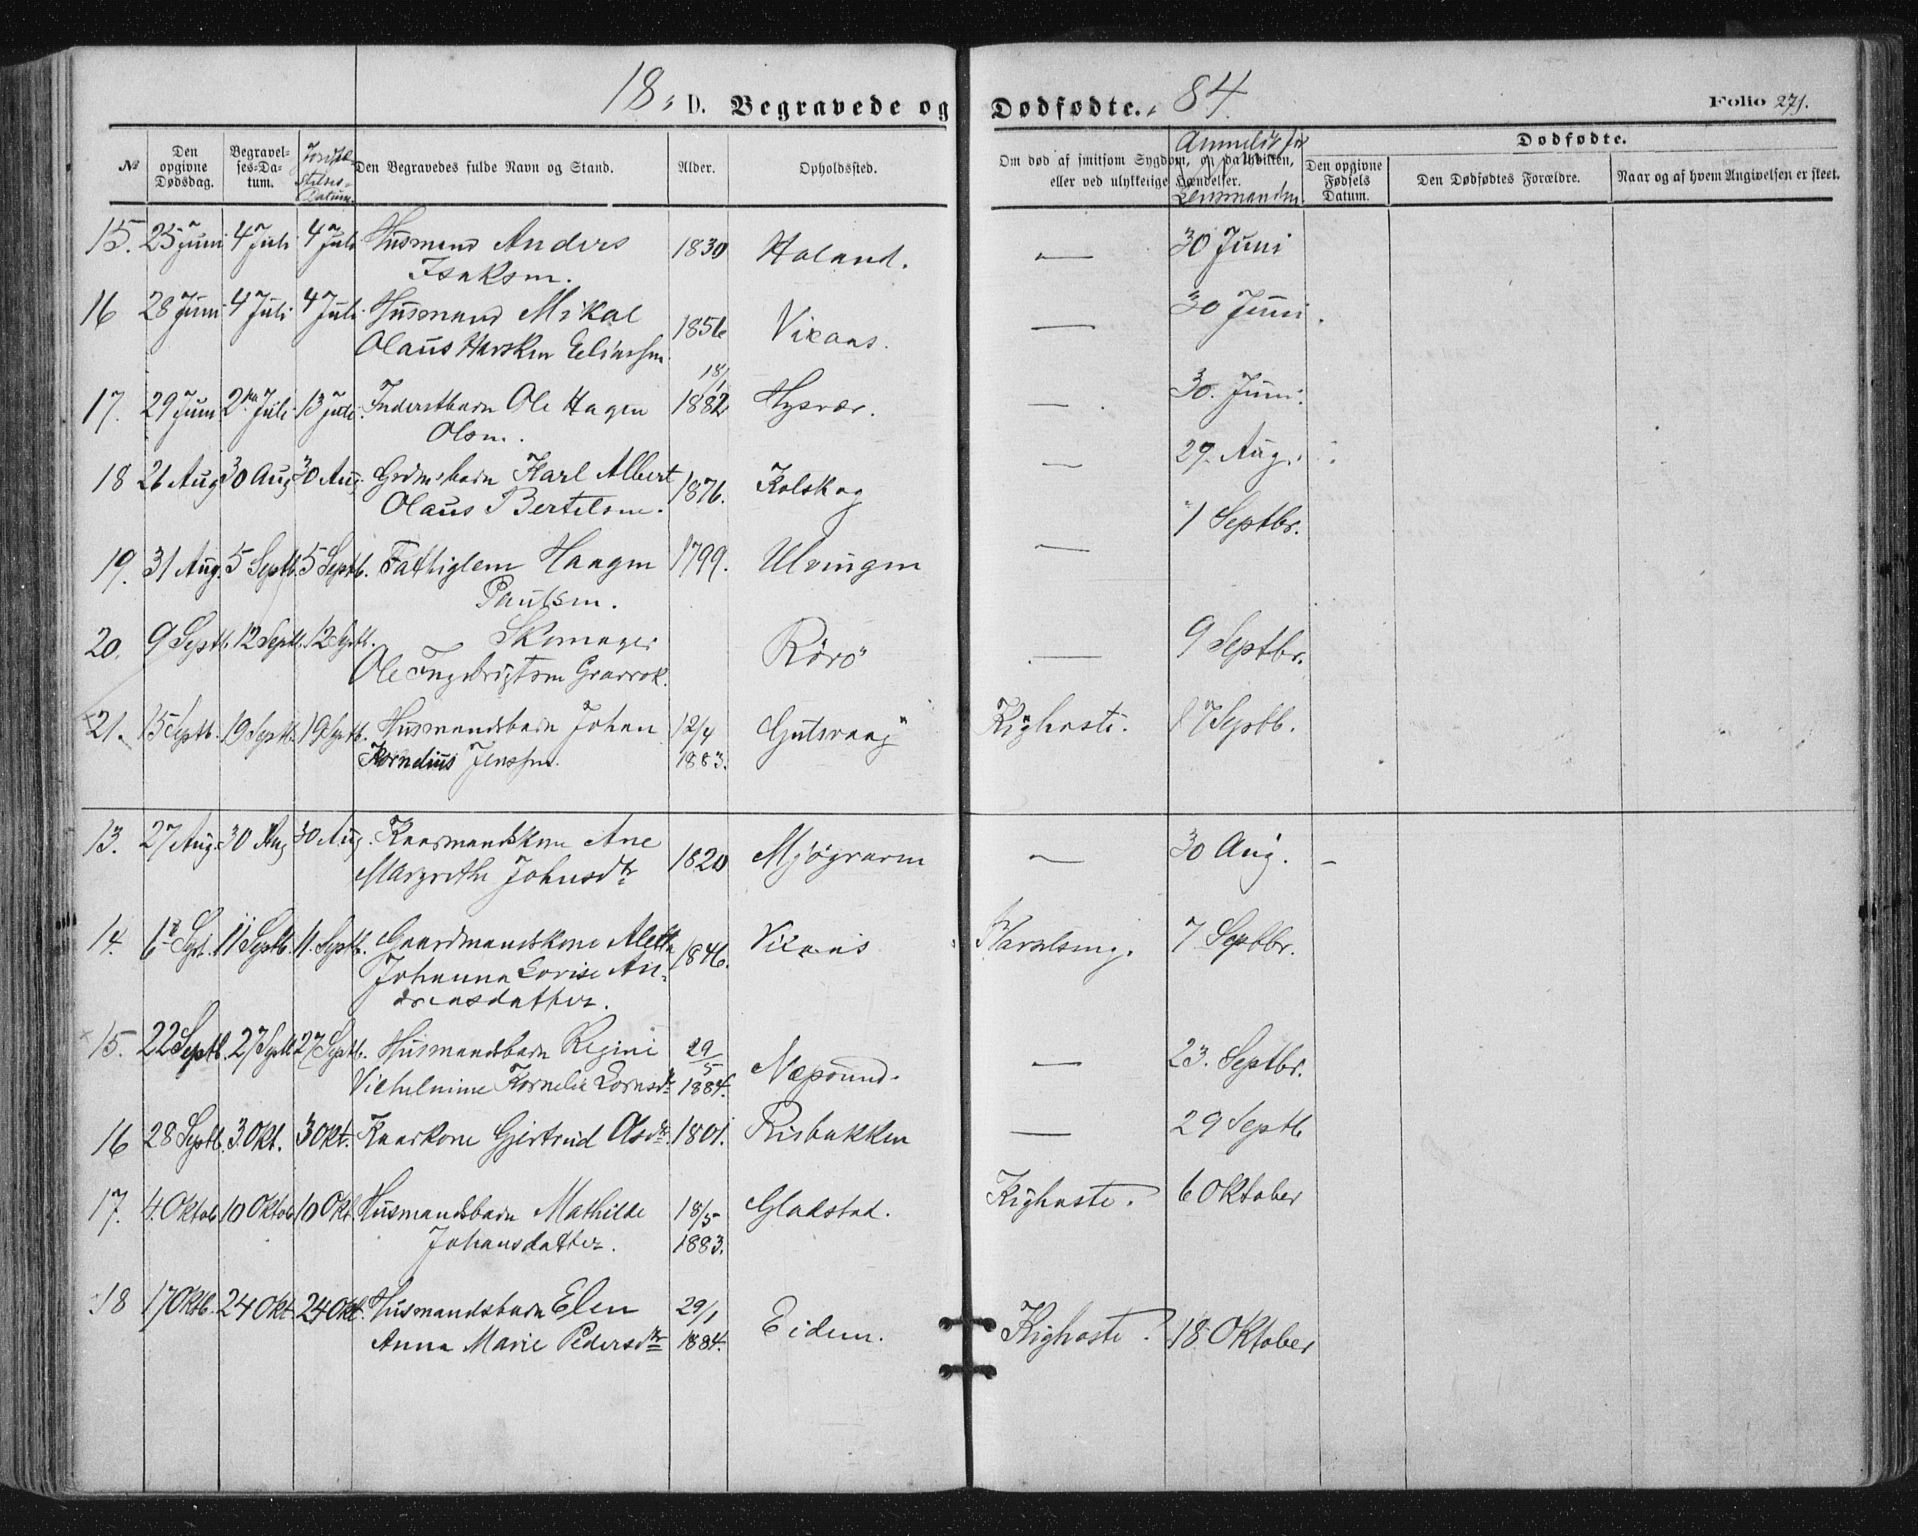 18 D. Begravede og Dødfødte. 84. Folio 271.
№ Den opgivne Dødsdag. Begravelses-Datum. Jordfæstelses-Datum. Den Begravedes fulde Navn og Stand. Alder. Opholdssted. Om død af smitsom Sygdom, og da hvilken, eller ved ulykkelige Hændelser. Anmeldt for Lensmanden Den opgivne Fødsels Datum. Dødfødte. Den Dødfødtes Forældre. Naar og af hvem Angivelsen er skeet.
15. 25 Juni 4 Juli 4 Juli Husmand Anders 1830 Haland. — 30 Juni
Isaksen.
16 28 Juni 4 Juli 4 Juli Husmand Mikal 1856 Vixaas. — 30 Juni.
Olaus Hersken Eliassen
17. 29 Juni 2 Juli 13 Juli Inderstbarn Ole Hagen 18/1 1882 Hysvær. — 30. Juni.
Olsen.
18 26 Aug 30 Aug 30 Aug. Grdmsbarn Karl Albert 1876. Kolskog — 29. Aug.
Olaus Bertelsen.
19. 31 Aug. 5 Septb. 5 Septb. Fattiglem Haagen 1799. Ulvingen — 1 Septbr.
Paulsen.
20. 9 Septb. 12 Septb. 12 Septb. Skomager Rørø — 9 Septbr.
Ole Ingebrigtsen Graarok.
21. 15 Septb. 19 Septb. 19 Septb. Husmandsbarn Johan 12/4 1883. Gutsvaag Kighoste. 17 Septb.
Kornelius Jenssen.
13. 27 Aug. 30 Aug 30 Aug. Kaarmandskone Ane 1820 Mjøgvaren — 30 Aug. —
Margrethe Johnsdtr
14. 6 Spt. 11 Septb. 11. Septb. Gaardmandskone Aletta 1846. Vixaas Barselseng. 7 Septbr.
Johanna Lovise Andreasdatter.
15. 22 Septb. 27 Septb 27 Septb. Husmandsbarn Regine 29/5 1884. Næpsund. — 23. Septbr.
Vilhelmine Kornelia Lornsdtr
16 28 Septb. 3. Okt. 3 Okt. Kaarkone Gjertrud Olsdtr 1801. Risbakken — 29 Septb
17. 4. Oktob 10 Oktob 10 Okt Husmandsbarn Mathilde 18/5 1883. Gladstad. Kighoste. 6 Oktober
Johansdatter.
18 17 Oktb. 24 Okt. 24 Okt. Husmandsbarn Elen 29/1 1884. Eidem. Kighoste. 18 Oktober
Anna Marie Pedersdtr